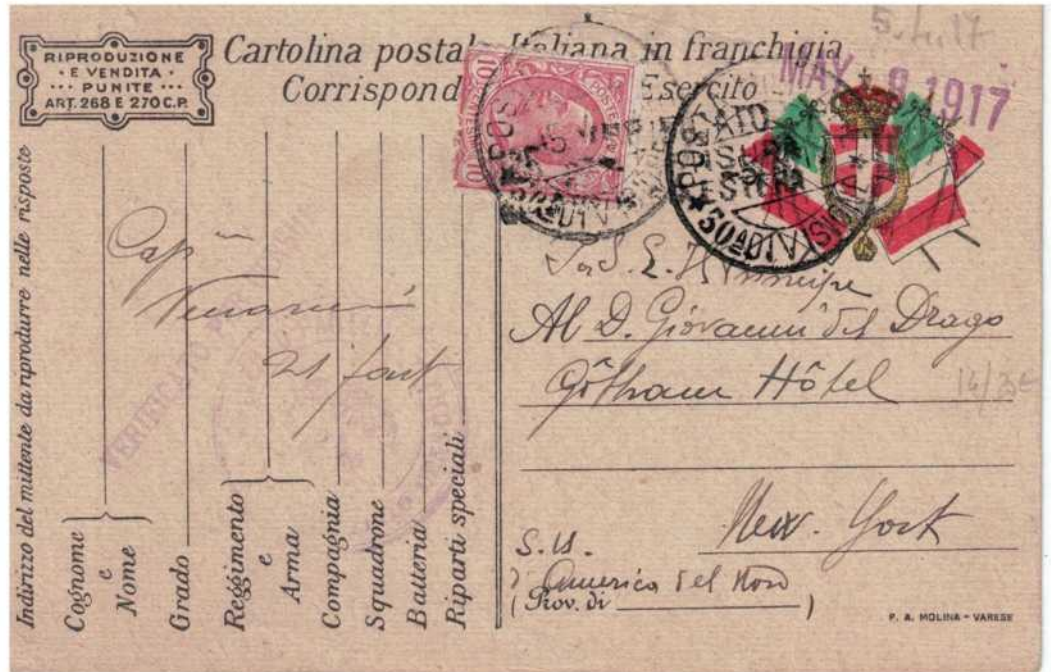 RIPRODUZIONE
· E VENDITA ·
··· PUNITE ···
ART. 268 E 270 C.P.
Cartolina postale Italiana in franchigia
Corrispond Esercito
5.4.17
MAY 9 1917
10 POSTE 10
POSTA
50ª DIVISIONE
Indirizzo del mittente da riprodurre nelle risposte
Cognome
e
Nome
Grado
Reggimento
e
Arma
Compagnia
Squadrone
Batteria
Riparti speciali
Cap
21 fant
VERIFICATO PER CENSURA
S. E. Il Principe
Al D. Giovanni del Drago
Gotham Hôtel
14/35€
New. York
S. U.
America del Nord
(Prov. di )
P. A. MOLINA - VARESE